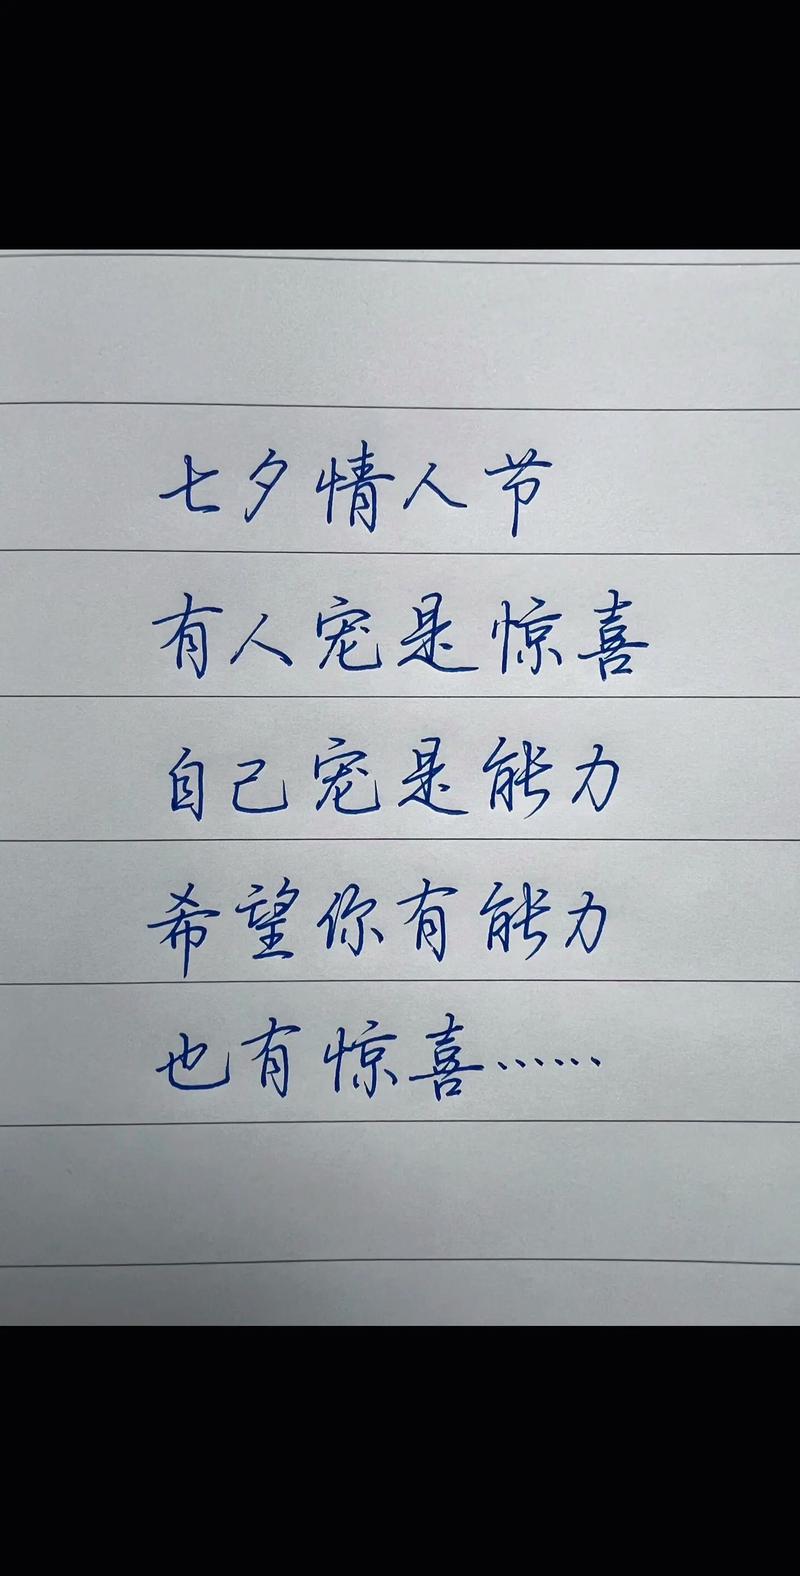 七夕情人节
有人宠是惊喜
自己宠是能力
希望你有能力
也有惊喜……